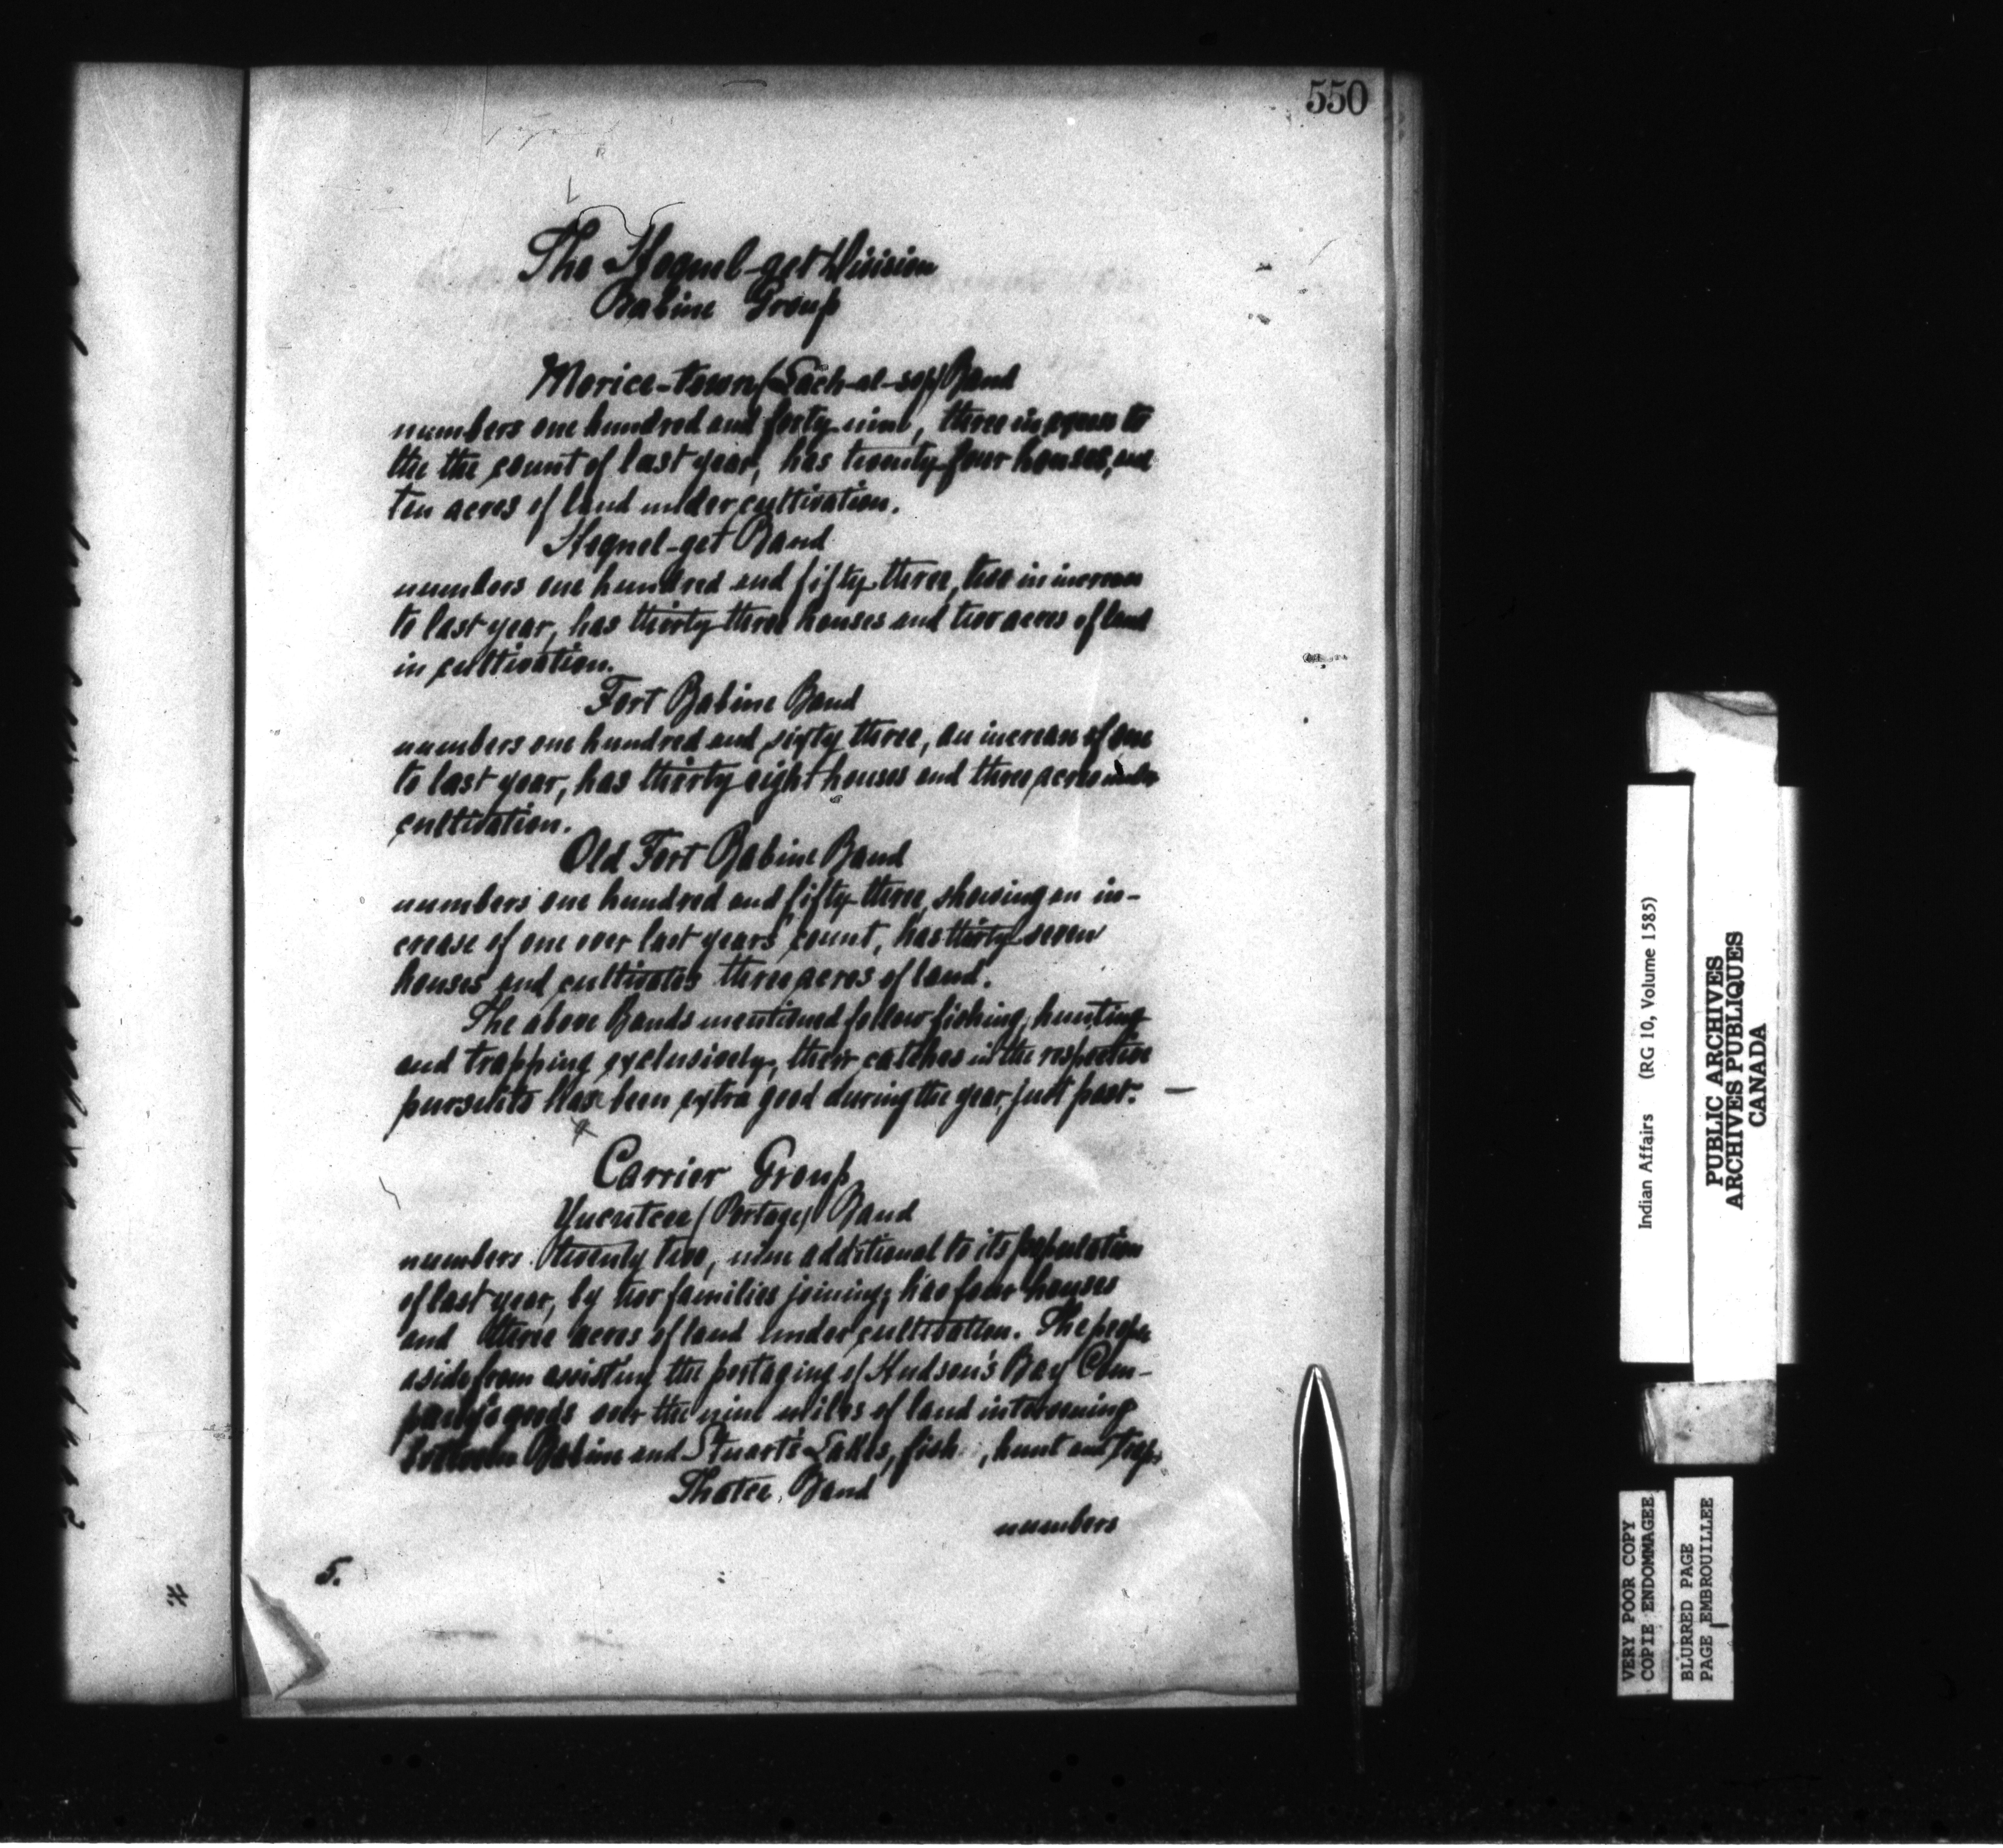 550
The Hoquel-get Division
Babine Group
Morice-town (Lach-al-sap) Band
numbers one hundred and forty-nine, three in excess to
the the count of last year, has twenty-four houses, and
ten acres of land under cultivation.
Hoquel-get Band
numbers one hundred and fifty-three, two in increase
to last year, has thirty-three houses and two acres of land
in cultivation.
Fort Babine Band
numbers one hundred and sixty three, an increase of one
to last year, has thirty eight houses and three acres under
cultivation.
Old Fort Babine Band
numbers one hundred and fifty-three, showing an in-
crease of one over last years count, has thirty-seven
houses and cultivates three acres of land.
The above Bands mentioned follow fishing, hunting
and trapping exclusively, their catches in the respective
pursuits has been extra good during the year, just past. —
Carrier Group
Yucutcee (Portage) Band
numbers twenty two, nine additional to its population
of last year, by two families joining; has four houses
and three acres of land under cultivation. The people
aside from assisting the portaging of Hudson's Bay Com-
pany's goods over the nine miles of land intervening
between Babine and Stuart's Lakes, fish, hunt and trap.
Thatce Band
numbers
5.
Indian Affairs (RG 10, Volume 1585)
PUBLIC ARCHIVES
ARCHIVES PUBLIQUES
CANADA
VERY POOR COPY
COPIE ENDOMMAGEE
BLURRED PAGE
PAGE EMBROUILLEE